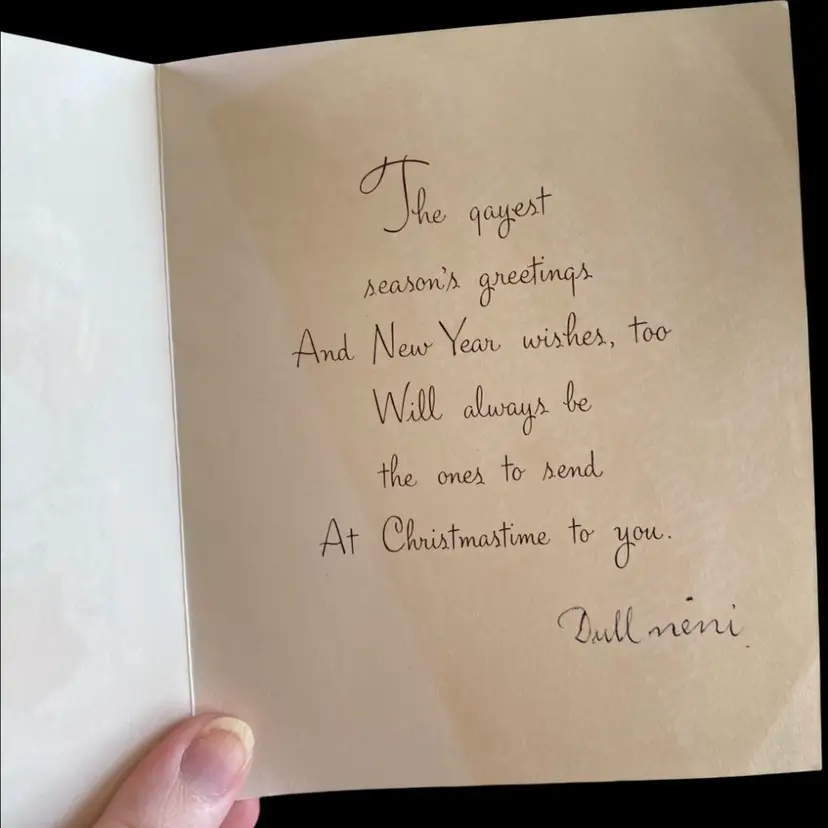 The gayest
season's greetings
And New Year wishes, too
Will always be
the ones to send
At Christmastime to you.
Dull neni